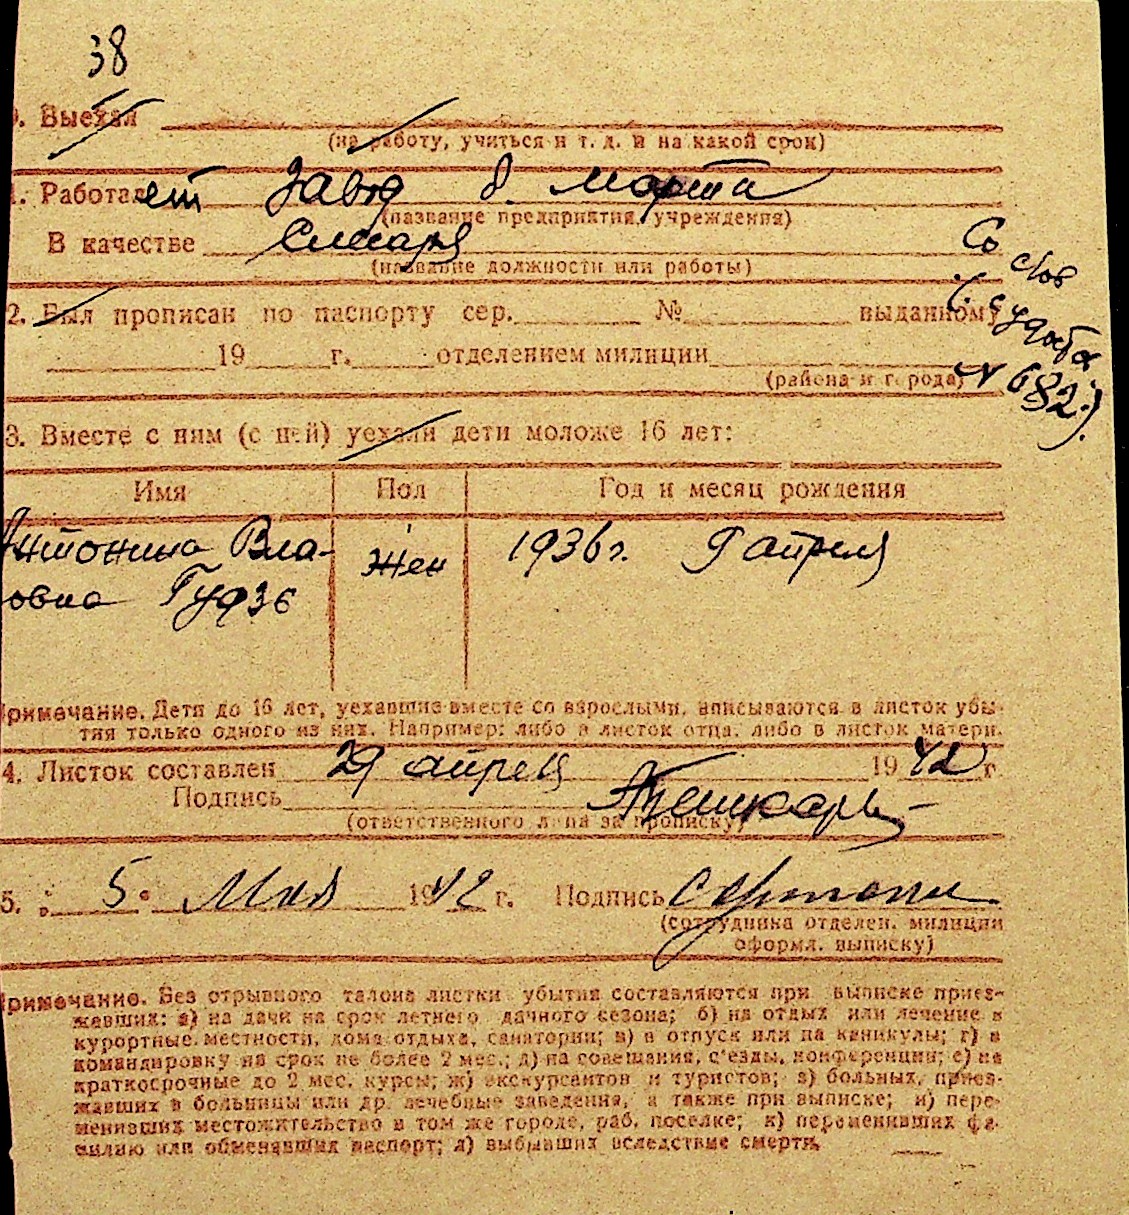 38
9. Выехал
(на работу, учиться и т. д. и на какой срок)
1. Работает Завод 8. Марта
(название предприятия, учреждения)
В качестве Слесаря
(название должности или работы)
Со слов
(с
№ 682.)
2. Был прописан по паспорту сер. № выданному
19 г. отделением милиции
(района и города)
3. Вместе с ним (с ней) уехали дети моложе 16 лет:
Имя Пол Год и месяц рождения
Антонина Вла- Жен 1936г. 9 апреля
овна Гудзе
римечание. Дети до 16 лет, уехавшие вместе со взрослыми, вписываются в листок убы-
тия только одного из них. Например: либо в листок отца, либо в листок матери.
4. Листок составлен 29 апрел 1942 г
Подпись
(ответственного лица за прописку)
5. 5 Мая 1942 г. Подпись
(сотрудника отделен. милиции
оформл. выписку)
римечание. Без отрывного талона листки убытия составляются при выписке приез-
жавших: а) на дачи на срок летнего дачного сезона; б) на отдых или лечение в
курортные местности, дома отдыха, санатории; в) в отпуск или на каникулы; г) в
командировку на срок не более 2 мес.; д) на совещания, с'езды, конференции; е) на
краткосрочные до 2 мес. курсы; ж) экскурсантов и туристов; з) больных, приез-
жавших в больницы или др. лечебные заведения, а также при выписке; и) пере-
менивших местожительство в том же городе, раб. поселке; к) переменивших фа-
милию или обменявших паспорт; л) выбывших вследствие смерти.